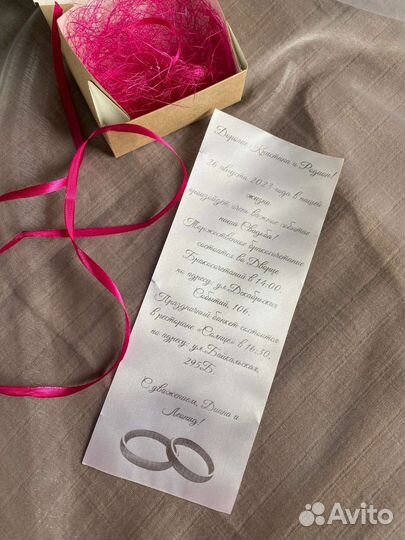 Дорогие, Кристина и Роман!
26 августа 2023 года в нашей
жизни
произойдет очень важное событие
наша Свадьба!
Торжественное бракосочетание
состоится во Дворце
Бракосочетаний в 14:00,
по адресу: ул.Декабрьских
Событий, 106.
Праздничный банкет состоится
в ресторане «Солнце» в 16:30,
по адресу: ул.Байкальская,
295Б.
С уважением, Диана и
Леонид!
Avito